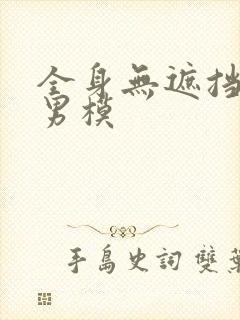 全身無遮挡
男模
手島史詞 雙葉